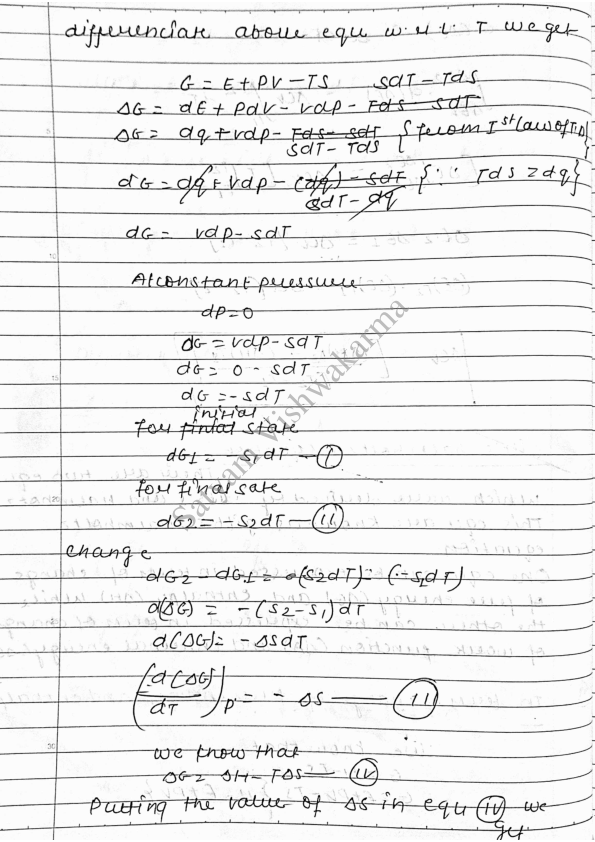 differenciate above equ w.r.t. T we get
G = E + PV - TS   SdT - TdS
ΔG = dE + PdV - vdp - Tds - sdT
ΔG = dq + vdp - Tds - sdT { from Ist law of T.D }
SdT - TdS
dG = dq + vdp - (dq) - sdT { ∵ Tds = dq }
sdT - dq
dG = vdp - sdT
At constant pressure
dP = 0
dG = vdp - sdT
dG = 0 - sdT
dG = - sdT
initial
for state
dG1 = - s1dT - (I)
for final sate
dG2 = - S2dT - (II)
change
dG2 - dG1 = -(S2dT) - (-S1dT)
d(ΔG) = - (S2 - S1) dT
d(ΔG) = - ΔSdT
(d(ΔG)/dT)p = - ΔS - (III)
we know that
ΔG = ΔH - TΔS - (IV)
Putting the value of ΔS in equ (IV) we
get
Satyam Vishwakarma